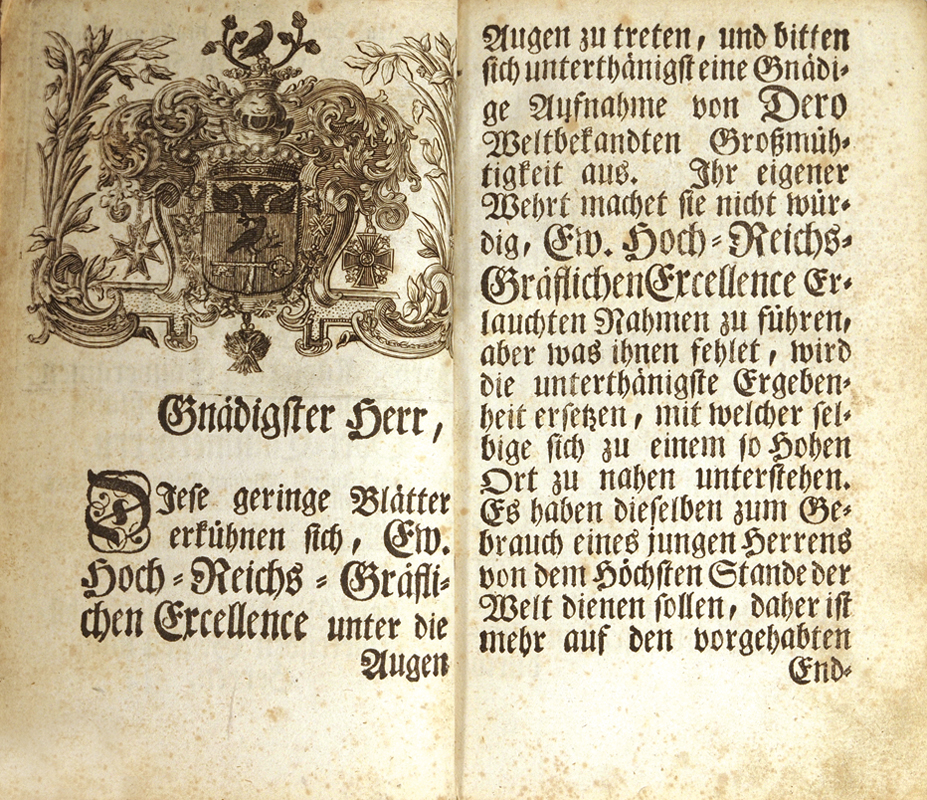 Gnädigster Herr,
DIese geringe Blätter
erkühnen sich, Ew.
Hoch-Reichs-Gräfli-
chen Excellence unter die
Augen
Augen zu treten, und bitten
sich unterthänigst eine Gnädi-
ge Aufnahme von Dero
Weltbekandten Großmüh-
tigkeit aus. Ihr eigener
Wehrt machet sie nicht wür-
dig, Ew. Hoch-Reichs-
Gräflichen Excellence Er-
lauchten Nahmen zu führen,
aber was ihnen fehlet, wird
die unterthänigste Ergeben-
heit ersetzen, mit welcher sel-
bige sich zu einem so Hohen
Ort zu nahen unterstehen.
Es haben dieselben zum Ge-
brauch eines jungen Herrens
von dem Höchsten Stande der
Welt dienen sollen, daher ist
mehr auf den vorgehabten
End-